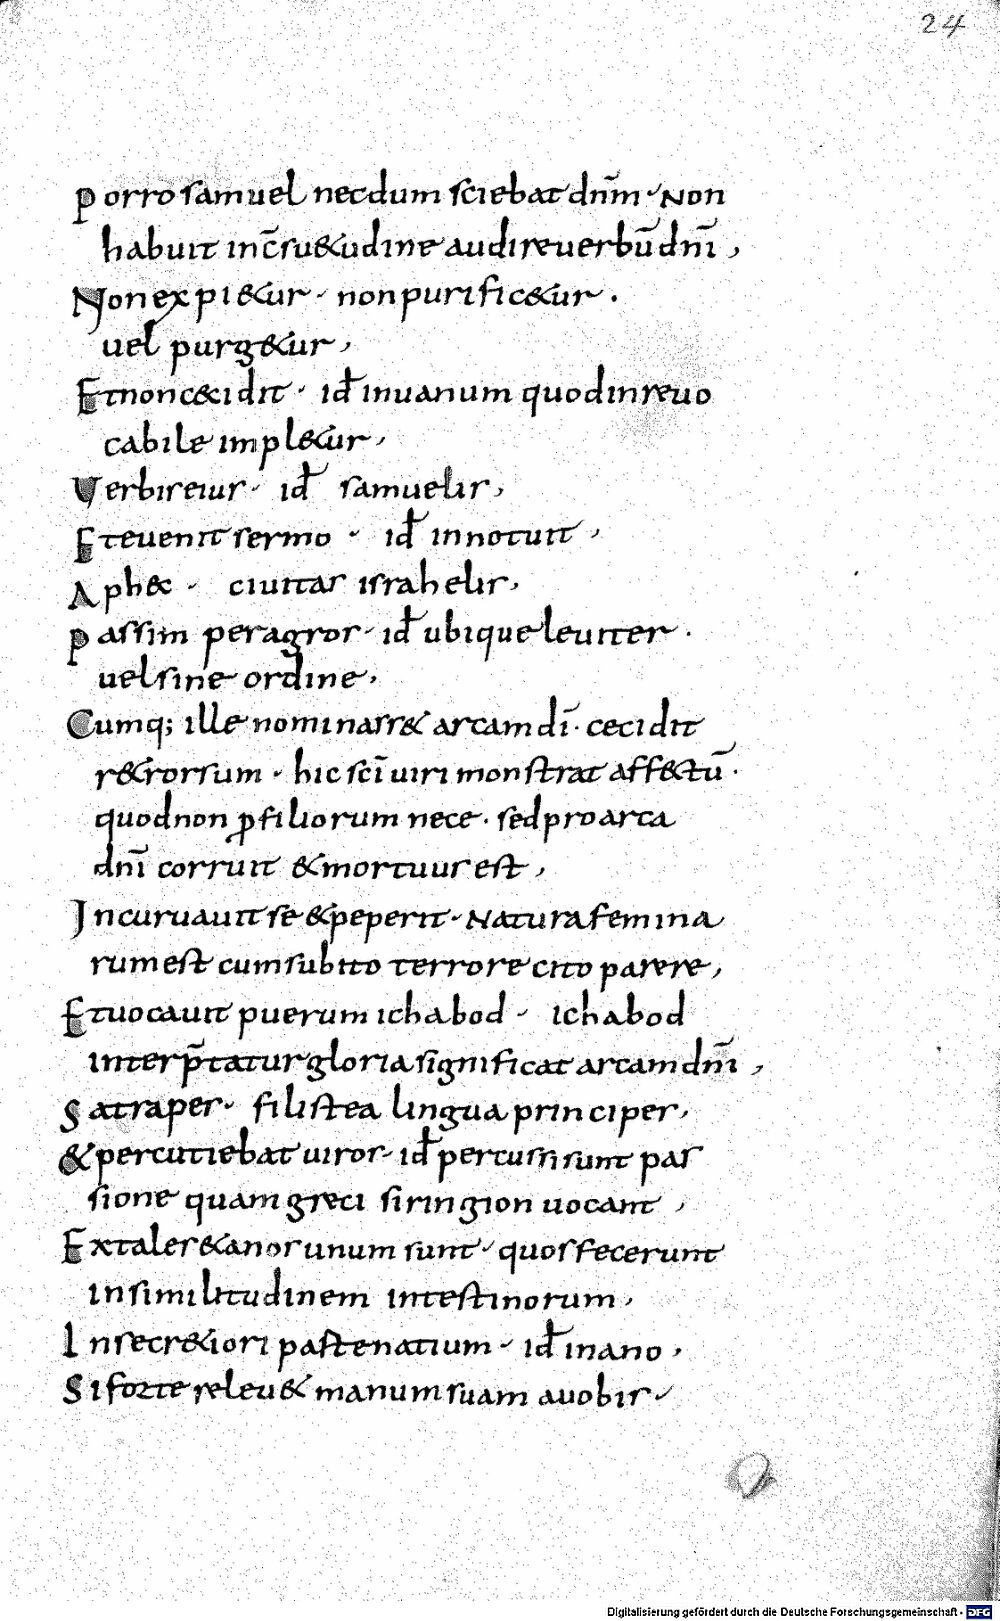 24
Porro samuel necdum sciebat dnm̄ · Non
habuit inc̄su&udine audire uerbū dnī,
Non expi&ur · non purific&ur ·
uel purg&ur,
Et non c&cidit · id̄ inuanum quod inreuo
cabile impl&ur,
Verbi eius · id̄ samuelis,
Et euenit sermo · id̄ innotuit,
Aphec · ciuitas israhelis,
Passim peragros · id̄ ubique leuiter ·
uel sine ordine,
Cumq; ille nominass& arcam dī · cecidit
r&rorsum · hic scī uiri monstrat affectū ·
quod non ꝓ filiorum nece · sed pro arca
dnī corruit & mortuus est,
Incuruauit se & peperit · Natura femina
rum est cum subito terrore cito parere,
Et uocauit puerum ichabod · ichabod
interp̄tatur gloria significat arcam dnī,
Satrapes · filistea lingua principes,
& percutiebat uiros · id̄ percussi sunt pas
sione quam greci siringion uocant,
Ex tales & anos unum sunt · quos fecerunt
in similitudinem intestinorum,
In secr&iori parte natium · id̄ in ano,
Si forte releu& manum suam a uobis ·
Digitalisierung gefördert durch die Deutsche Forschungsgemeinschaft - DFG